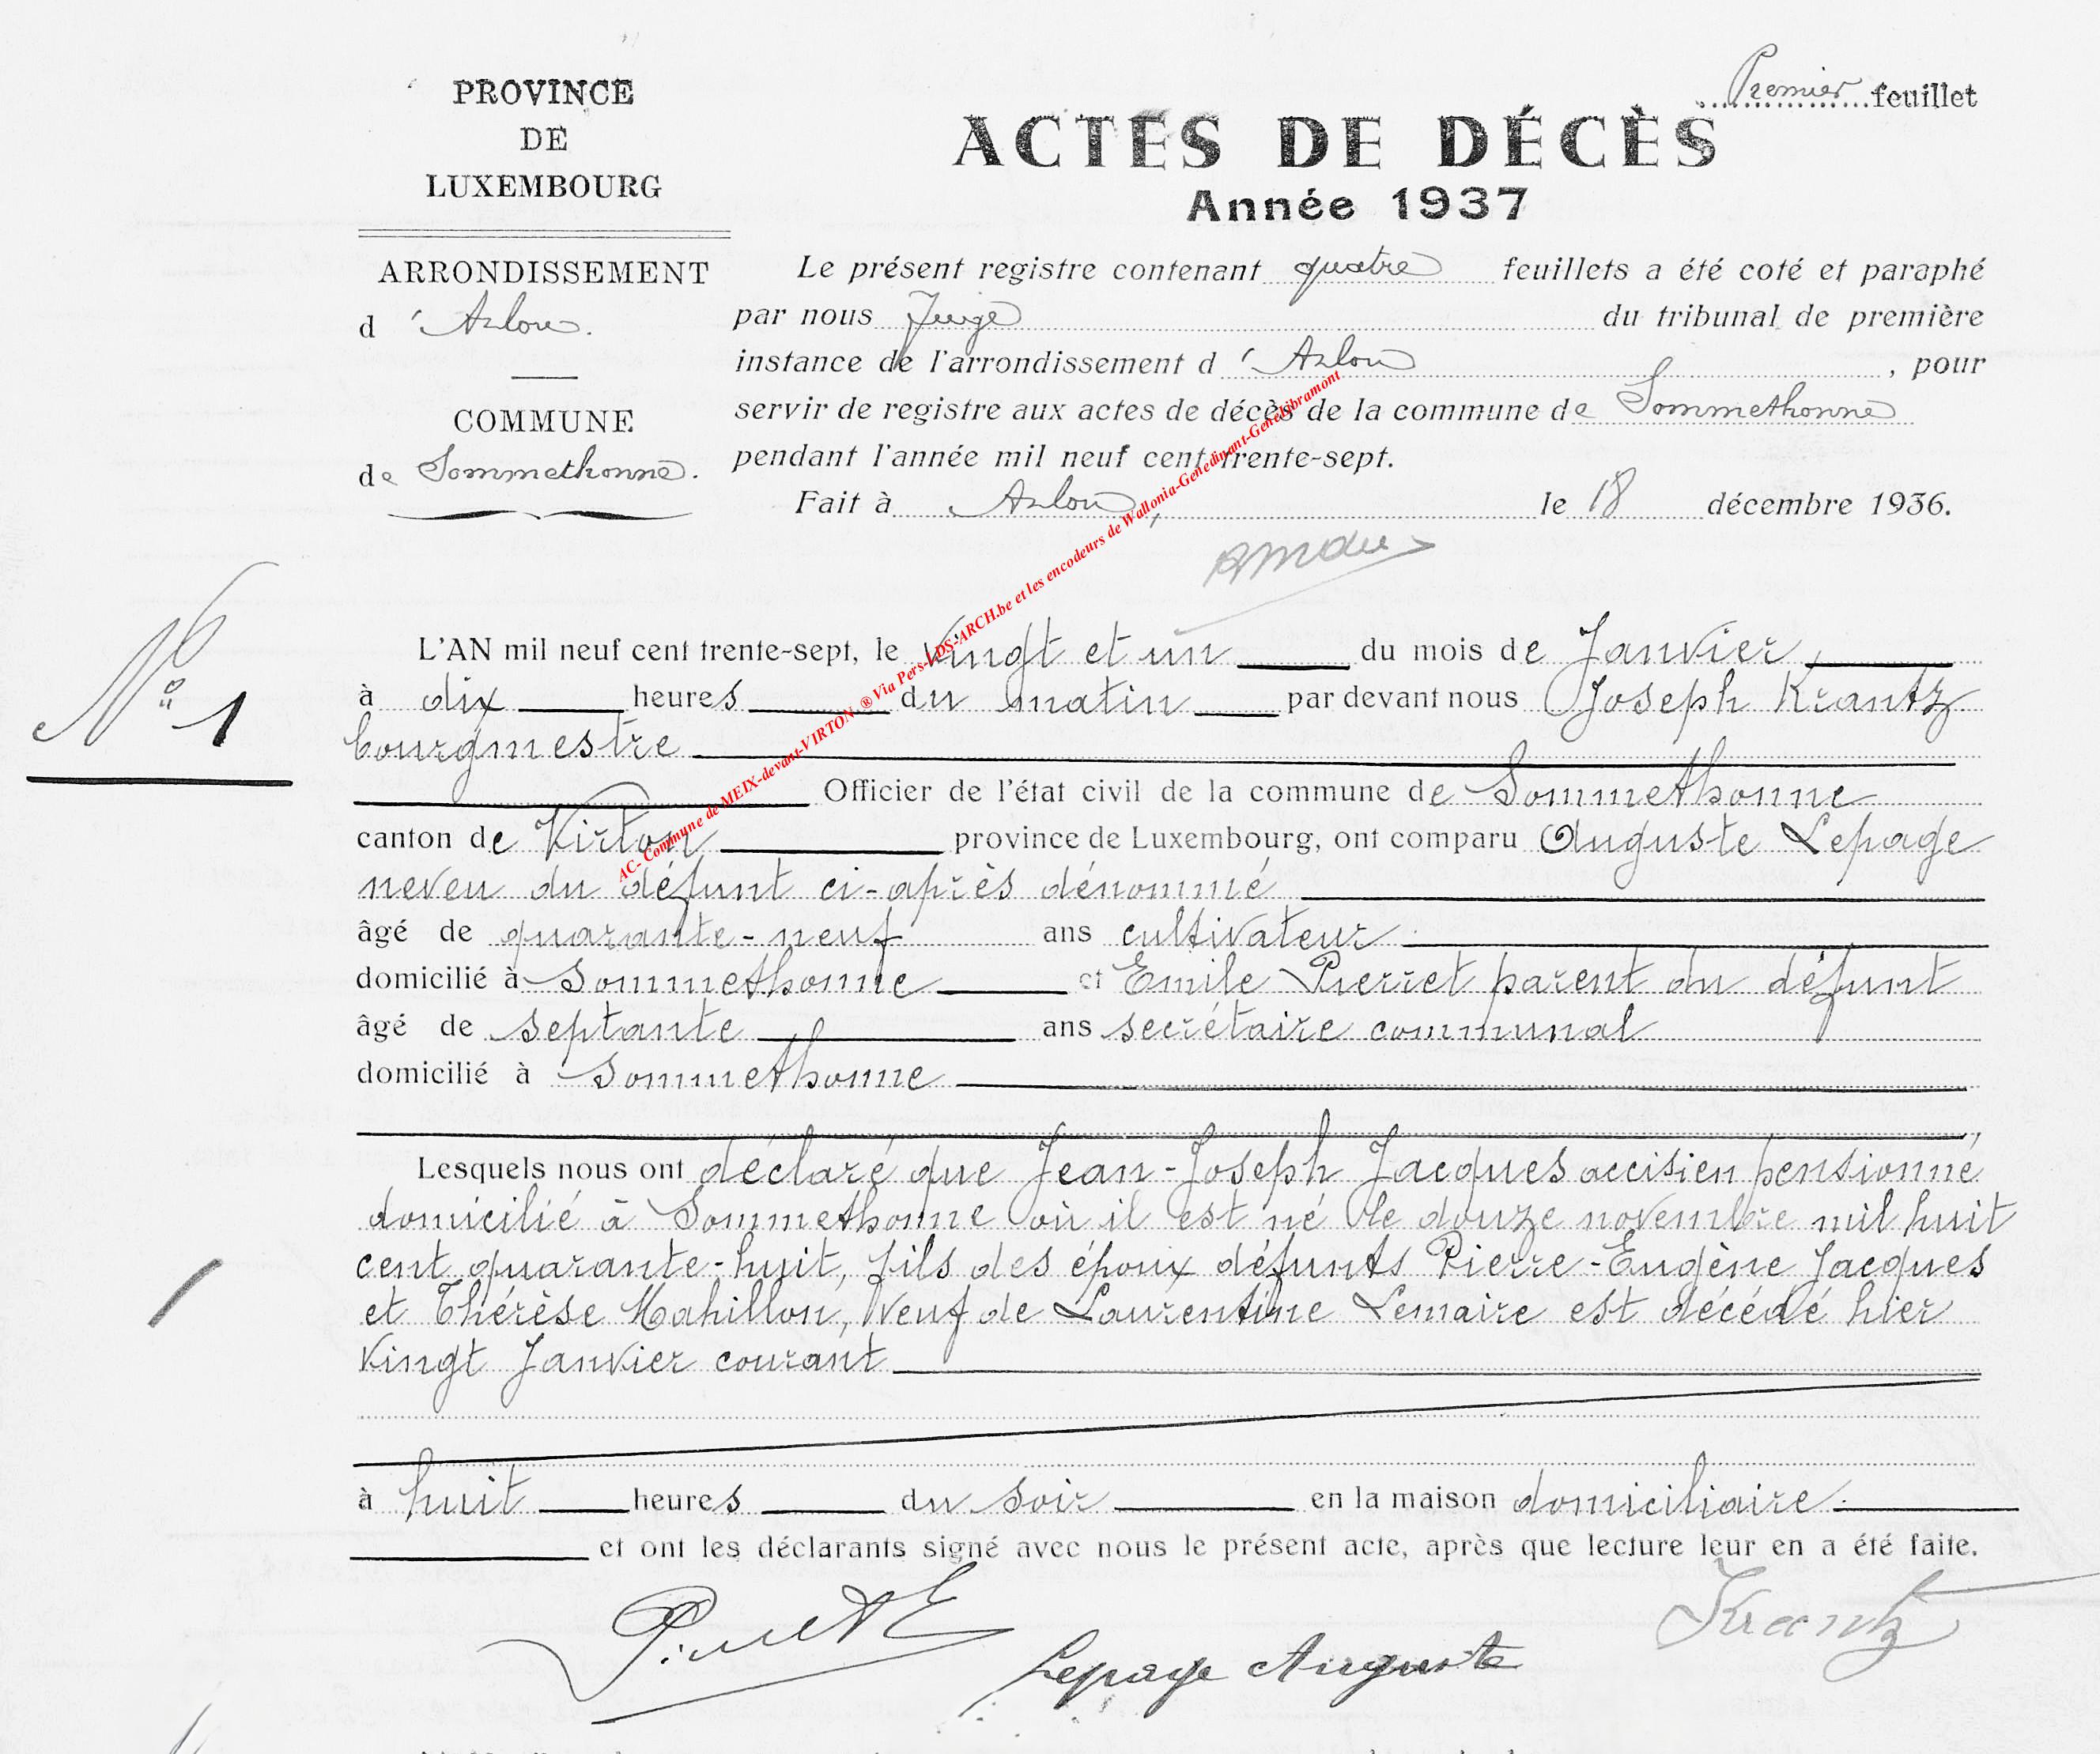 Premier feuillet
PROVINCE
DE
LUXEMBOURG
ACTES DE DÉCÈS
Année 1937
ARRONDISSEMENT
d'Arlon.
COMMUNE
de Sommethonne.
Le présent registre contenant quatre feuillets a été coté et paraphé
par nous Juge du tribunal de première
instance de l'arrondissement d'Arlon, pour
servir de registre aux actes de décès de la commune de Sommethonne
pendant l'année mil neuf cent trente-sept.
Fait à Arlon, le 18 décembre 1936.
AC- Commune de MEIX-devant-VIRTON ® Via Pers-LDS-ARCH.be et les encodeurs de Wallonia-Genedinant-Genelibramont
No 1
L'AN mil neuf cent trente-sept, le vingt et un du mois de Janvier,
à dix heures du matin par devant nous Joseph Krantz
bourgmestre
Officier de l'état civil de la commune de Sommethonne
canton de Virton province de Luxembourg, ont comparu Auguste Lepage
neveu du défunt ci-après dénommé
âgé de quarante-neuf ans cultivateur
domicilié à Sommethonne et Emile Pierret parent du défunt
âgé de septante ans secrétaire communal
domicilié à Sommethonne
,
Lesquels nous ont déclaré que Jean-Joseph Jacques accisien pensionné
domicilié à Sommethonne où il est né le douze novembre mil huit
cent quarante-huit, fils des époux défunts Pierre-Eugène Jacques
et Thérèse Mahillon, veuf de Laurentine Lemaire est décédé hier
vingt Janvier courant
à huit heures du soir en la maison domiciliaire.
et ont les déclarants signé avec nous le présent acte, après que lecture leur en a été faite.
Krantz
Lepage Auguste